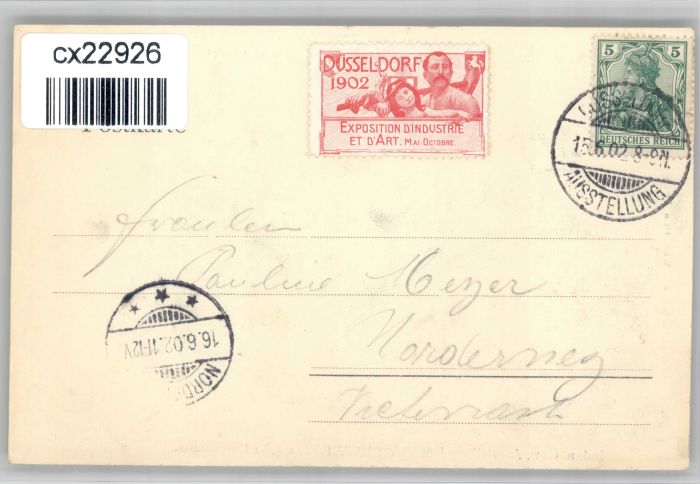 cx22926
Postkarte
DÜSSELDORF
1902
EXPOSITION D'INDUSTRIE
ET D'ART. MAI-OCTOBRE
5 5
DEUTSCHES REICH
DÜSSELDORF
15.6.02. 8-9N.
AUSSTELLUNG
Fräulein
Pauline Meyer
Norderney
16.6.02. 11-12V.
NORDE